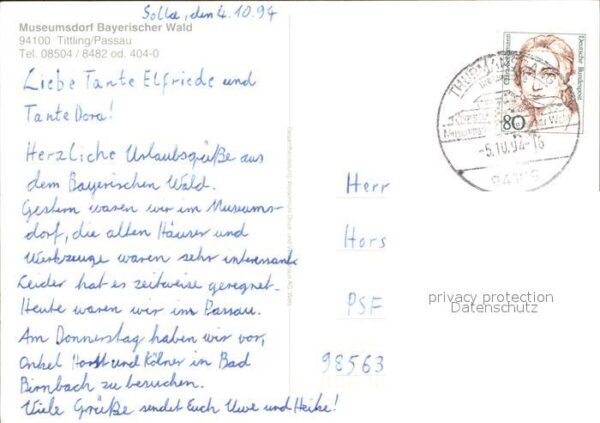 Solla, den 4.10.94
Museumsdorf Bayerischer Wald
94100 Tittling/Passau
Tel. 08504 / 8482 od. 404-0
Liebe Tante Elfriede und
Tante Dora!
Herzliche Urlaubsgrüße aus
dem Bayerischen Wald.
Gestern waren wir im Museums-
dorf, die alten Häuser und
Werkzeuge waren sehr interessant.
Leider hat es zeitweise geregnet.
Heute waren wir im Passau.
Am Donnerstag haben wir vor,
Onkel Horst und Kölner in Bad
Birnbach zu besuchen.
Viele Grüße sendet Euch Uwe und Heike!
Deutsche Bundespost
80
THURMANSBANG
-5.10.94-16
Herr
Hors
PSF
98563
privacy protection
Datenschutz